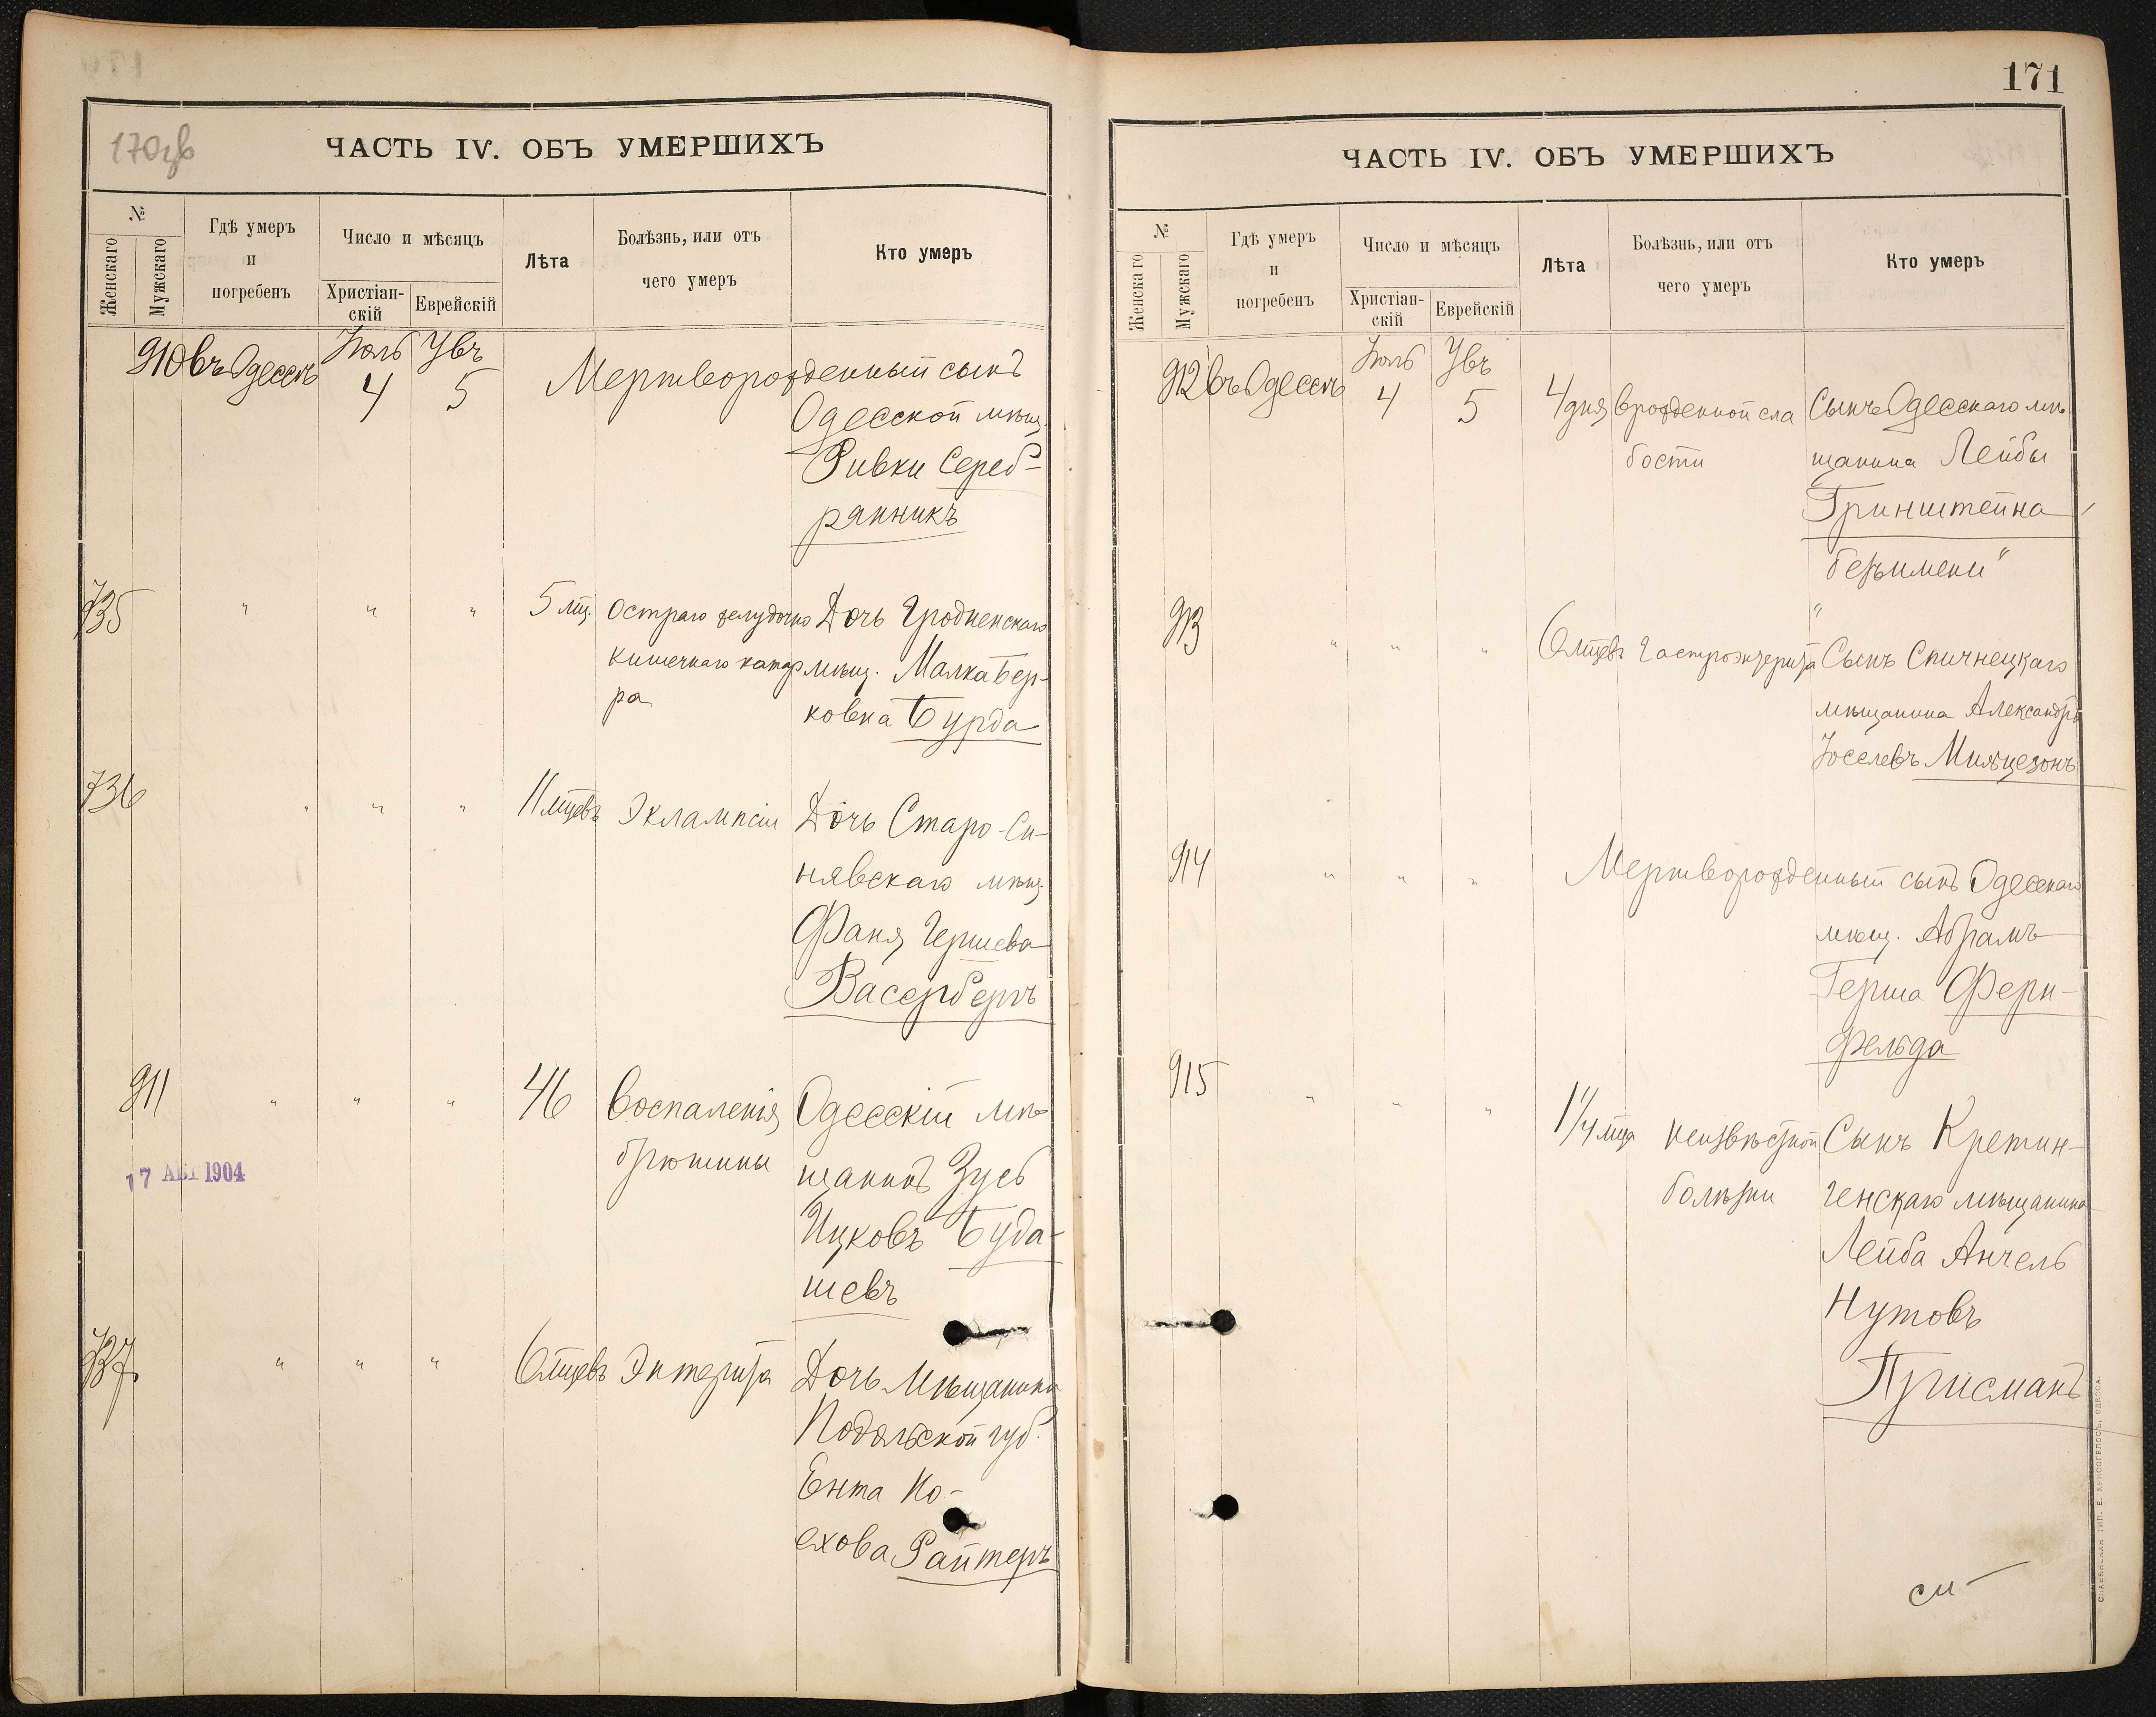 170зв
ЧАСТЬ IV. ОБЪ УМЕРШИХЪ
№
Женскаго
Мужскаго
Гдѣ умеръ
и
погребенъ
Число и мѣсяцъ
Христіан-
скій
Еврейскій
Лѣта
Болѣзнь, или отъ
чего умеръ
Кто умеръ
910 въ Одессѣ Іюль 4 Увъ 5 Мертворожденный сынъ
Одесской мѣщ.
Ривки Сереб-
рянникъ
735 " " " 5 мц. Остраго желудочно Дочь Гродненскаго
кишечнаго катар мѣщ. Малка Бер-
ра ковна Бурда
736 " " " 11 мцевъ Эклампсіи Дочь Старо-Си-
нявскаго мѣщ.
Фаня Гершева
Васербергъ
911 " " " 46 Воспаленія Одесскій мѣ-
брюшины щанинъ Зусь
Ицковъ Буда-
шевъ
17 АВГ 1904
737 " " " 6 мцевъ Энтерита Дочь Мѣщанина
Подольской губ.
Ента Но-
ехова Райтеръ
171
ЧАСТЬ IV. ОБЪ УМЕРШИХЪ
№
Женскаго
Мужскаго
Гдѣ умеръ
и
погребенъ
Число и мѣсяцъ
Христіан-
скій
Еврейскій
Лѣта
Болѣзнь, или отъ
чего умеръ
Кто умеръ
912 въ Одессѣ Іюль 4 Увъ 5 4 дня врожденной сла Сынъ Одесскаго мѣ
бости щанина Лейбы
Гринштейна
"безъ имени"
913 " " " 6 мцевъ Гастроэнтерита Сынъ Спичнецкаго
мѣщанина Александръ
Іоселевъ
914 " " " Мертворожденный сынъ Одесскаго
мѣщ. Абрамъ
Герша Ферн-
фельда
915 " " " 1 1/4 мца неизвѣстной Сынъ Кретин-
болѣзни генскаго мѣщанина
Лейба Анчель
Нутовъ
см
СЛАВЯНСКАЯ ТИП. Е. ХРИСОГЕЛОСЪ, ОДЕССА.